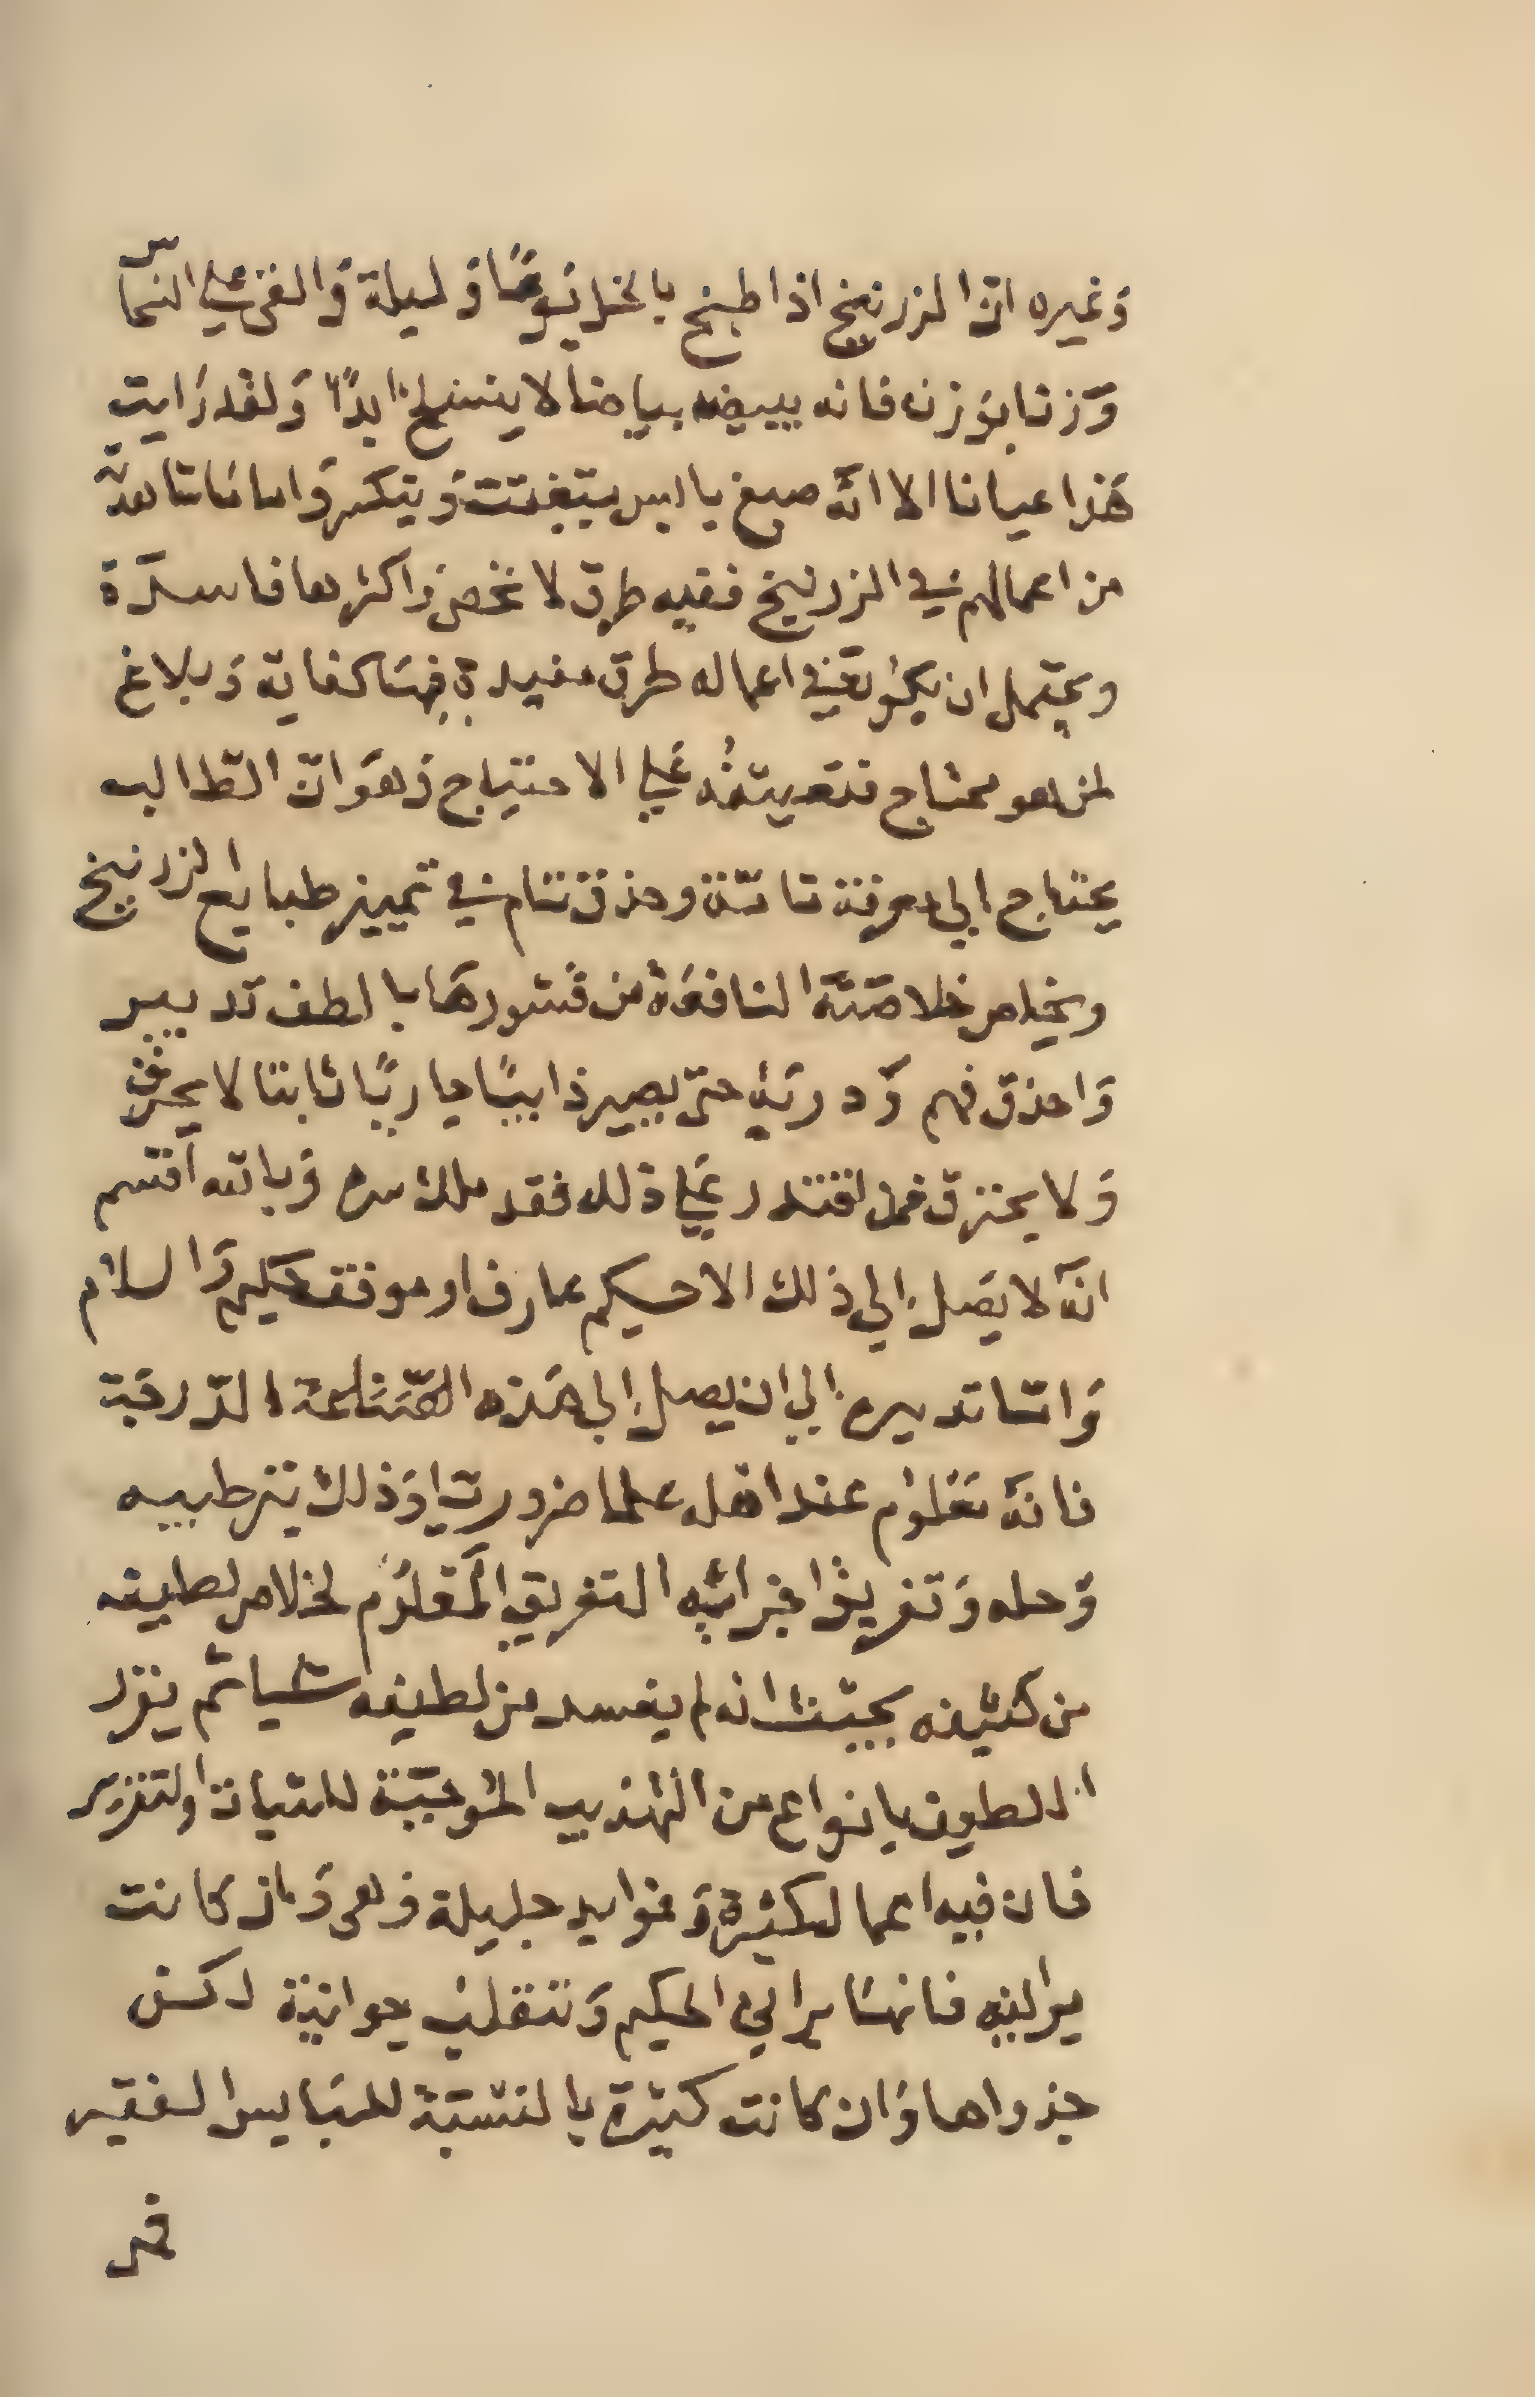 وَغيره انّ الزرنيخ اذا طبخ بالخل يَومًا وَ ليلة وَالقى علي النحاس
وَزنا بوَزن فانه يبيضه بياضا لا ينسلخ ابدًا وَلقد رَايت
هَذا عيانا الا انَّه صبغ يابس يتفتت وَيتكسر وَاما مَا شاهدته
من اعمالهم في الزرنيخ ففيه طرق لا تحصى وَاكثرها فاسدَة
ويحتمل ان يكوُن في اعماله طرق مفيدة فيهَا كفاية وَبلاغ
لمن هو محتاج علي الاحتياج وَهوَ انّ الطّالب
يحتاج الي معرفة تامّة وحذق تام في تمييز طبايع الزرنيخ
ويخلص خلاصته النافعَة من قشورهَا بالطف تدبير
وَاحذق فهم وَدربَة حتى يصير ذايبًا جاريًا ثابتا لا يحرق
وَلا يحترق فمن اقتدر عَلي ذلك فقد ملك سره وَبالله اقسم
انَّه لا يَصل الي ذلك الا حكيم عارف او موفق حكيم وَالسلام
وَامّا تدبيره الي ان يصل الي هَذه الصّنَاعة الدّرجَة
فانَّه مَعْلوُم عند اهله علما ضروريا وَذلك بترطيبه
وَحله وَتفريق اجزائه التفريق المَعْلوُم لخلاص لطيفه
من كثيفه بحيث انه لم يفسد من لطيفه شيا ثم يفرد
اللطيف بانواع من التهذيب الموُجبَة للثبات والتقرير
فان فيه اعمال كثيرة وَفوايد جليلة وَهى وَان كانت
برانيه فانهَا براني الحكيم وَتنقلب جوانية لاكن
جذواها وَان كانت كثيرة بالنسبَة للبَايس الفقير
فهى